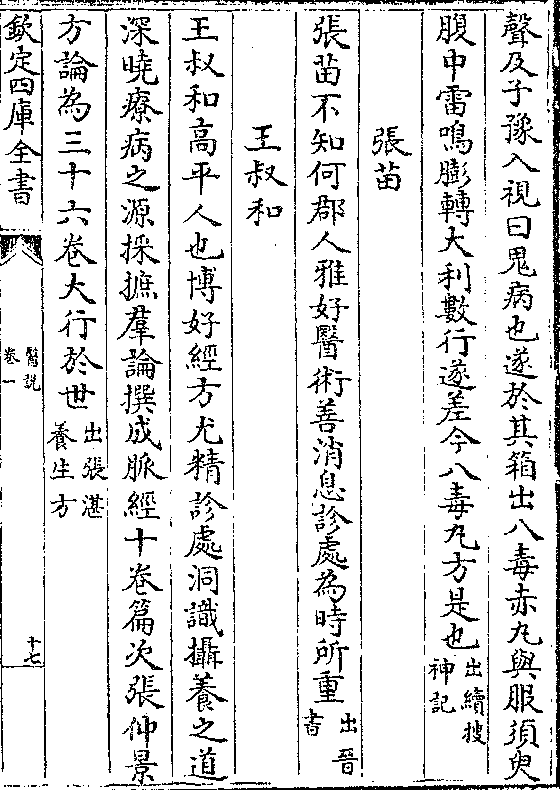 聲及子豫入視曰鬼病也遂於其箱出八毒赤丸與服須臾
腹中雷鳴膨轉大利數行遂差今八毒丸方是也出續搜神記
張苗
張苗不知何郡人雅好醫術善消息診處為時所重出晉書
王叔和
王叔和高平人也博好經方尤精診處洞識攝養之道
深曉療病之源採摭羣論撰成脈經十卷篇次張仲景
方論為三十六卷大行於世出張湛養生方
欽定四庫全書
醫說
卷一
十七